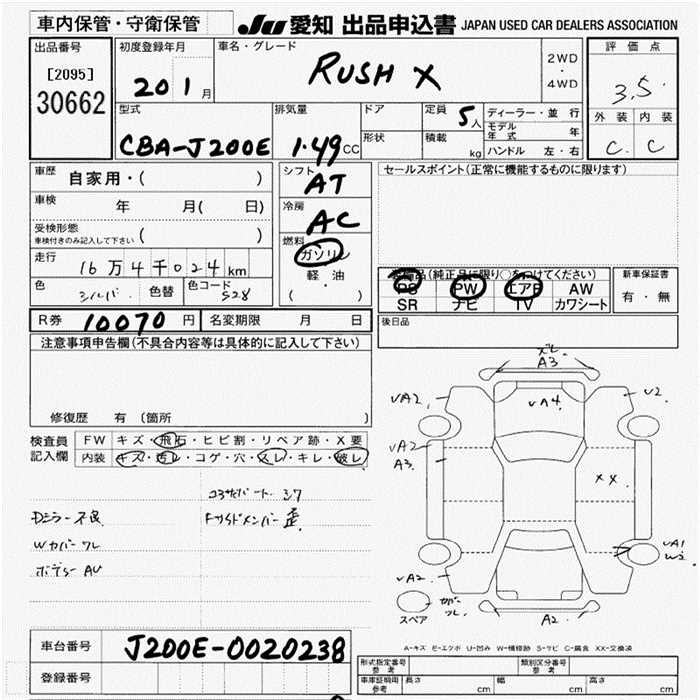 車内保管・守衛保管
JU 愛知 出品申込書 JAPAN USED CAR DEALERS ASSOCIATION
出品番号
[2095]
30662
初度登録年月
20 1 月
車名・グレード
RUSH X
2WD
・
4WD
評価点
3.5
外装 内装
C C
型式
CBA-J200E
排気量
1.49 CC
ドア
形状
定員
5人
積載
kg
ディーラー・並行
モデル年式 年
ハンドル 左・右
車歴 自家用・( )
車検 年 月( 日)
受検形態
車検付きのみ記入して下さい ( )
走行
16万4千024km
色 シルバ 色替
色コード S28
シフト
AT
冷房
AC
燃料
ガソリン
軽油
( )
セールスポイント(正常に機能するものに限ります)
装備品(純正品に限り○をつけてください)
PS PW エアB AW
SR ナビ TV カワシート
新車保証書
有・無
後日品
R券 10070 円
名変期限 月 日
注意事項申告欄(不具合内容等は具体的に記入して下さい)
修復歴 有(箇所 )
検査員記入欄
FW キズ・飛石・ヒビ割・リペア跡・X要
内装 キズ・汚レ・コゲ・穴・スレ・キレ・破レ
コアサポート シワ
Dミラー不良
Fサイドメンバー 歪
Wカバー ワレ
ボディー AU
A3
UA2
UA4
U2
UA2
A3
XX
UA1
W2
UA2
カバー
ワレ
スペア
A2
A-キズ E-エクボ U-凹み W-補修跡 S-サビ C-腐食 XX-交換済
車台番号 J200E-0020238
登録番号
形式指定番号
参考
類別区分番号
参考
車庫証明用
参考
長さ cm
幅 cm
高さ cm